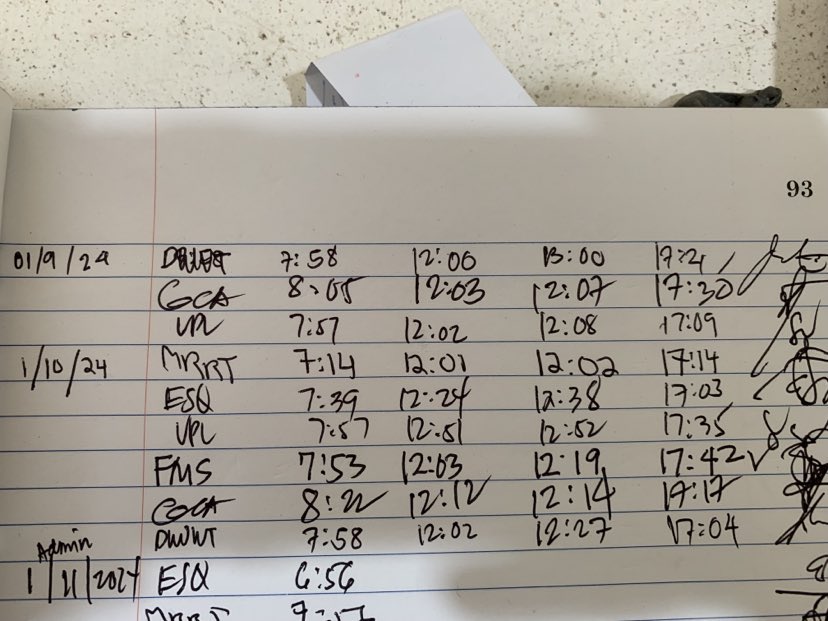 93
01/9/24 7:58 12:00 13:00 17:21
GCA 8:05 12:03 12:07 17:30
VPL 7:57 12:02 12:08 17:09
1/10/24 MRRT 7:14 12:01 12:02 17:14
ESQ 7:39 12:24 12:38 17:03
VPL 7:57 12:51 12:52 17:35
FMS 7:53 12:03 12:19 17:42
GCA 8:22 12:12 12:14 17:17
DWWT 7:58 12:02 12:27 17:04
Admin
1/11/2024 ESQ 6:56
MRRT